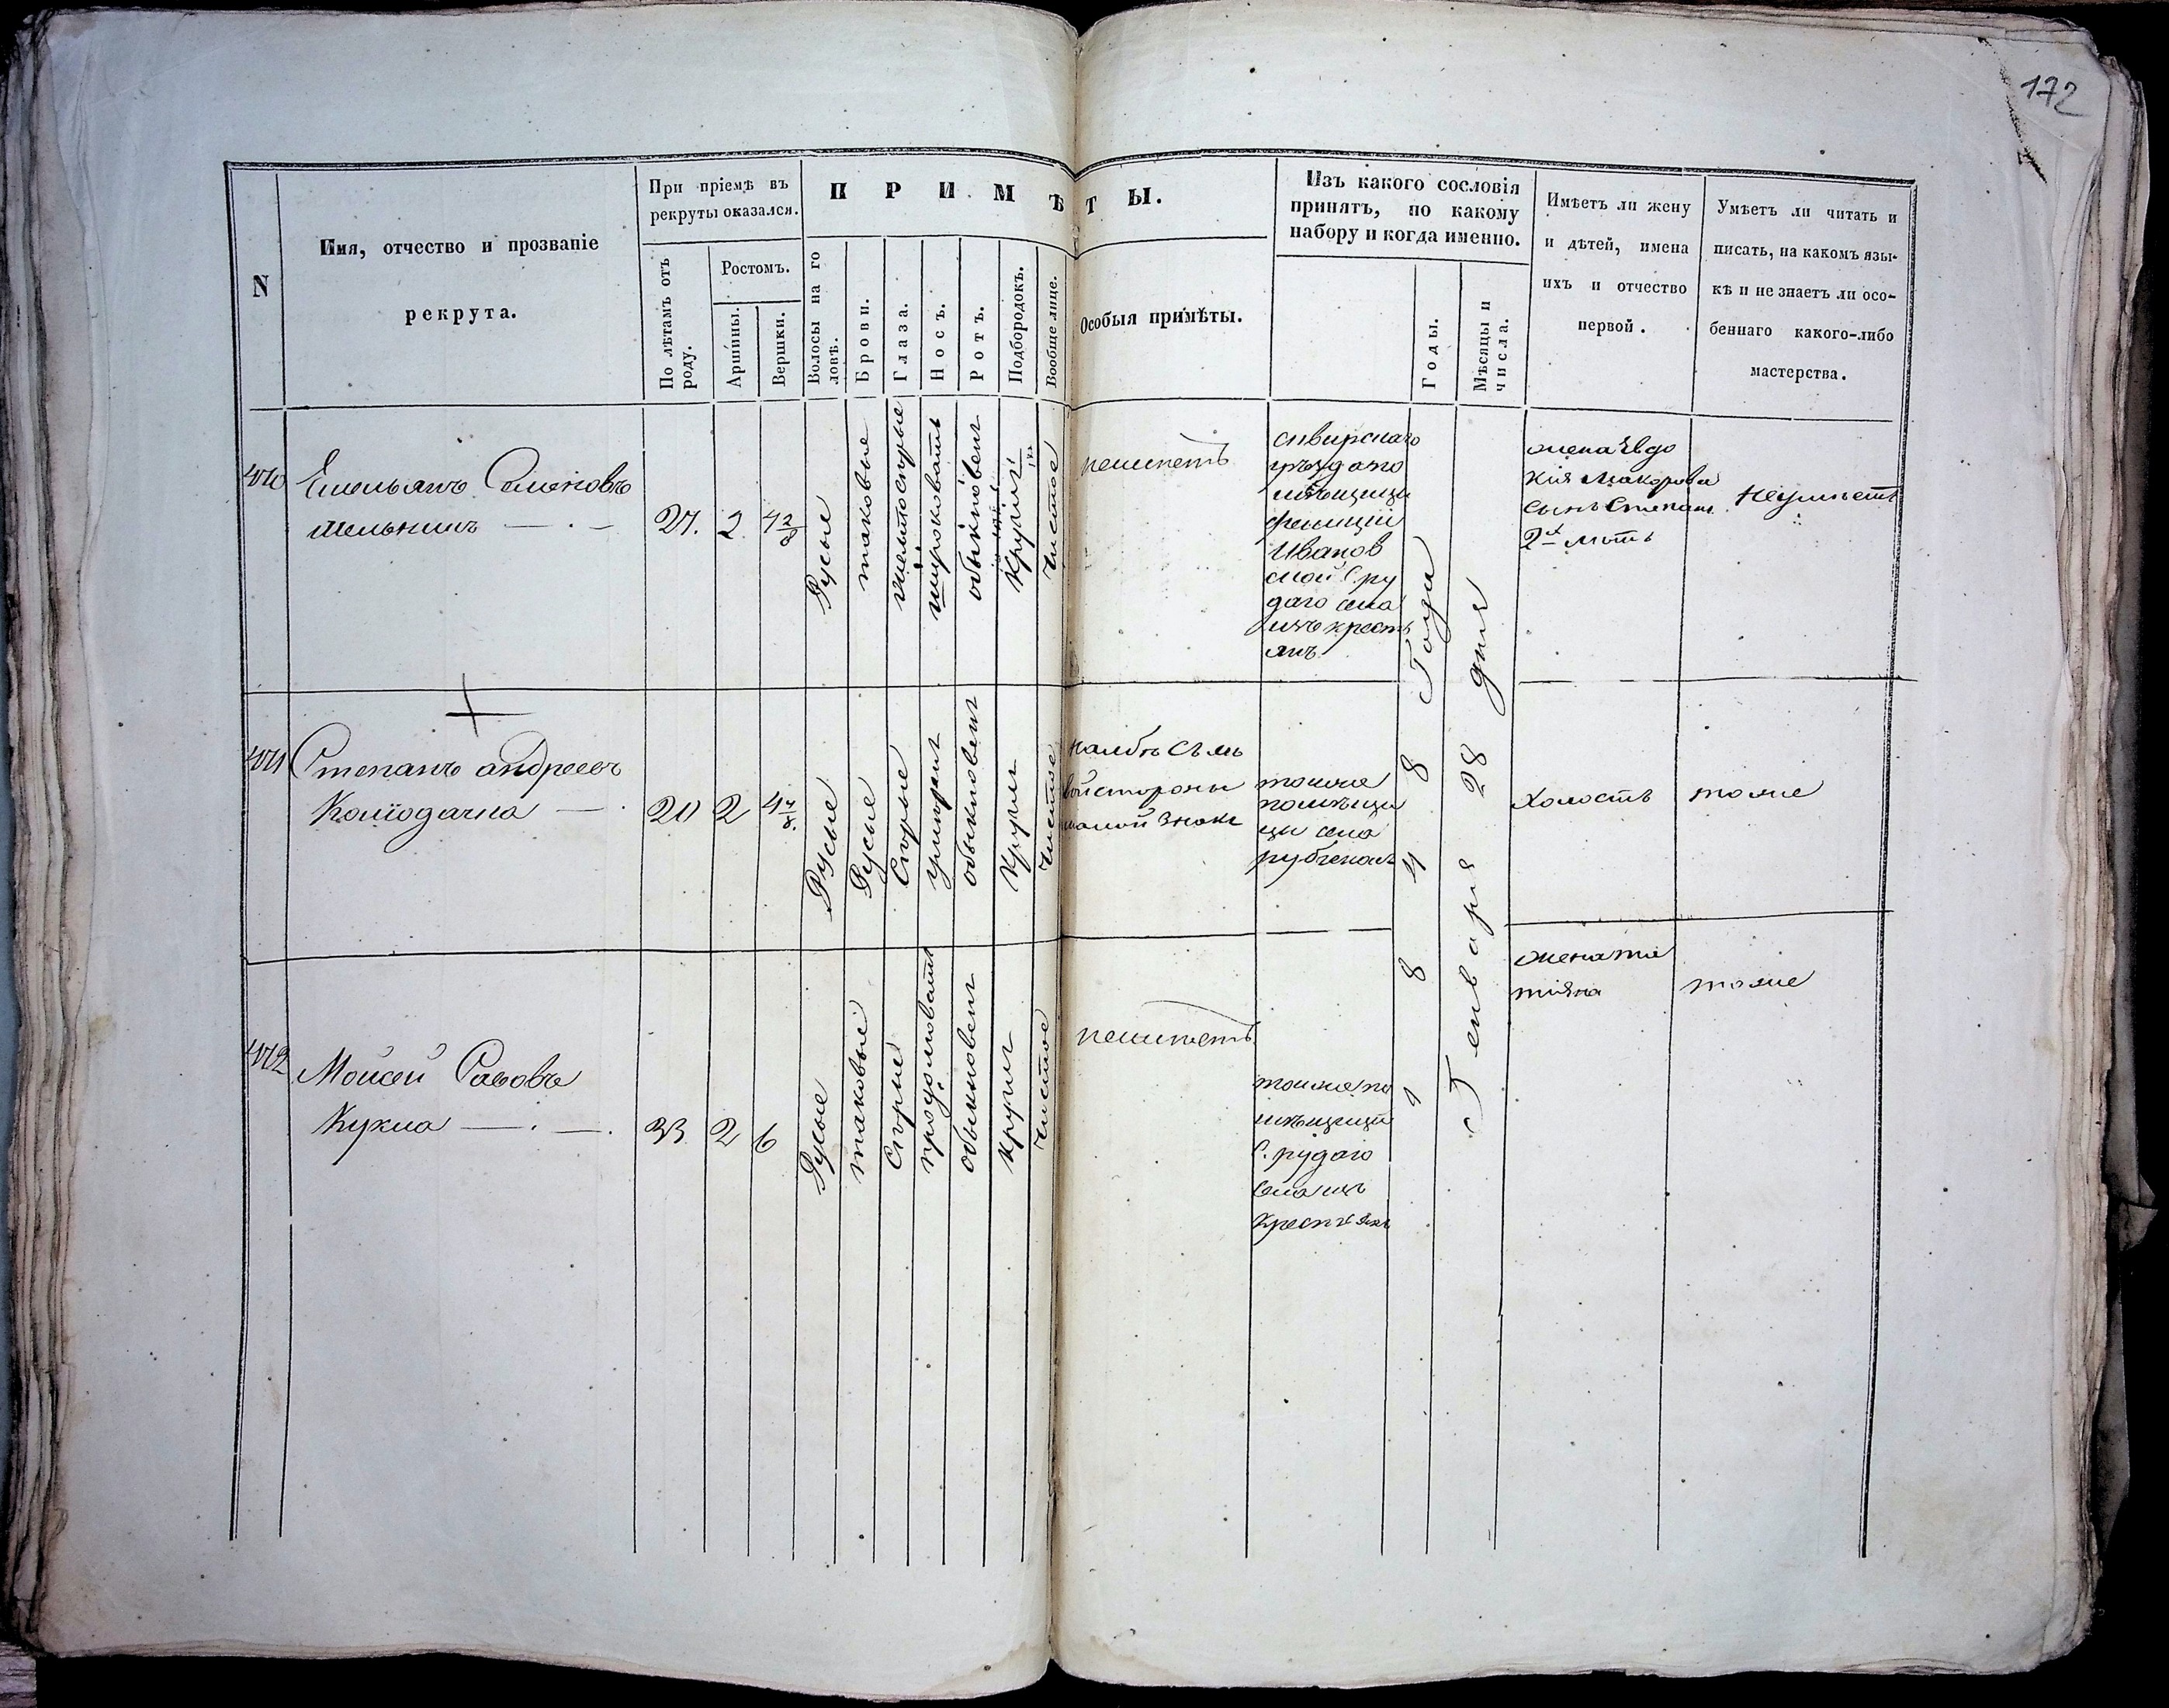 172
N
Имя, отчество и прозваніе
рекрута.
При пріемѣ въ
рекруты оказался.
По лѣтамъ отъ
роду.
Ростомъ.
Аршины.
Вершки.
ПРИМѢТЫ.
Волосы на го
ловѣ.
Брови.
Глаза.
Носъ.
Ротъ.
Подбородокъ.
Вообще лице.
Особыя примѣты.
Изъ какого сословія
принятъ, по какому
набору и когда именно.
Годы.
Мѣсяцы и
числа.
Имѣетъ ли жену
и дѣтей, имена
ихъ и отчество
первой.
Умѣетъ ли читать и
писать, на какомъ язы-
кѣ и не знаетъ ли осо-
беннаго какого-либо
мастерства.
Емельянъ Семеновъ
Мельникъ
27.
2
4 2/8
Русыя
таковые
желтосерые
широковатъ
обыкновен
Кругл
Чистое
неимѣетъ
сквирскаго
уѣзда по
мѣщицы
Фелиціи
Иванов
ской С. ру
даго села
изъ кресть
янъ
1848 Года
Генваря 28 дня
жена Евдо
кія Макорова
сынъ Степанъ
2х лѣтъ
Неумѣетъ
Степанъ Андреевъ
20
2
4 4/8
Русые
Русые
Серые
умерен
обыкновен
Кругл
Чистое
на лбѣ съ лѣ
вой стороны
малой знакъ
тойже
помѣщи
цы села
Холостъ
тоже
Моисей Савовъ
Кукла
33
2
6
Русые
таковые
Серые
продолговатъ
обыкновен
Кругл
Чистое
неимѣетъ
тойже по
мѣщицы
С. рудаго
села изъ
крестьянъ
жена та
тіяна
тоже